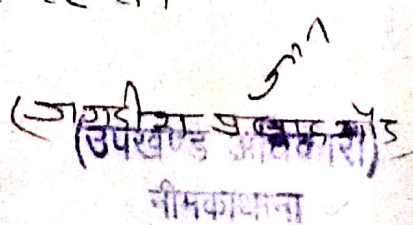 (जगदीश प्रसाद गौड
(उपखण्ड अधिकारी)
नीमकाथाना